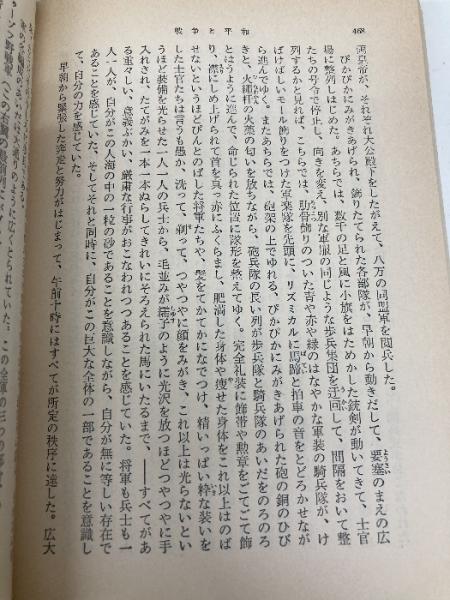 468
戦争と平和
両皇帝が、それぞれ大公殿下をしたがえて、八万の同盟軍を閲兵した。
ぴかぴかにみがきあげられ、飾りたてられた各部隊が、早朝から動きだして、要塞のまえの広
場に整列しはじめた。あちらでは、数千の足と風に小旗をはためかした銃剣が動いてきて、士官
たちの号令で停止し、向きを変え、別な軍服の同じような歩兵集団を迂回して、間隔をおいて整
列するかと見れば、こちらでは、肋骨飾りのついた青や赤や緑のはなやかな軍装の騎兵隊が、け
ばけばしいモール飾りをつけた軍楽隊を先頭に、リズミカルに馬蹄と拍車の音をとどろかせなが
ら進んでゆく。またあちらでは、砲架の上でゆれる、ぴかぴかにみがきあげられた砲の銅のひび
きと、火縄杆の火薬の匂いを放ちながら、砲兵隊の長い列が歩兵隊と騎兵隊のあいだをのろのろ
とはうように進んで、命じられた位置に隊形を整えてゆく。完全礼装に飾帯や勲章をごてごて飾
り、襟にしめ上げられて首を真っ赤にふくらまし、肥満した身体や痩せた身体をこれ以上はのば
せないというほどぴんとのばした将軍たちや、髪をてかてかになでつけ、精いっぱい粋な装いを
した士官たちは言うも愚か、洗って、剃って、つやつやに顔をみがき、これ以上は光らないとい
うほど装備を光らせた一人一人の兵士から、毛並みが繻子のように光沢を放つほどつやつやに手
入れされ、たてがみを一本一本ぬらしてきれいにそろえられた馬にいたるまで、――すべてがあ
る重々しい、意義ぶかい、厳粛な行事がおこなわれつつあることを感じていた。将軍も兵士も一
人一人が、自分がこの人海の中の一粒の砂であることを意識しながら、自分が無に等しい存在で
あることを感じていた、そしてそれと同時に、自分がこの巨大な全体の一部であることを意識し
て、自分の力を感じていた。
早朝から緊張した奔走と努力がはじまって、午前十時にはすべてが所定の秩序に達した。広大